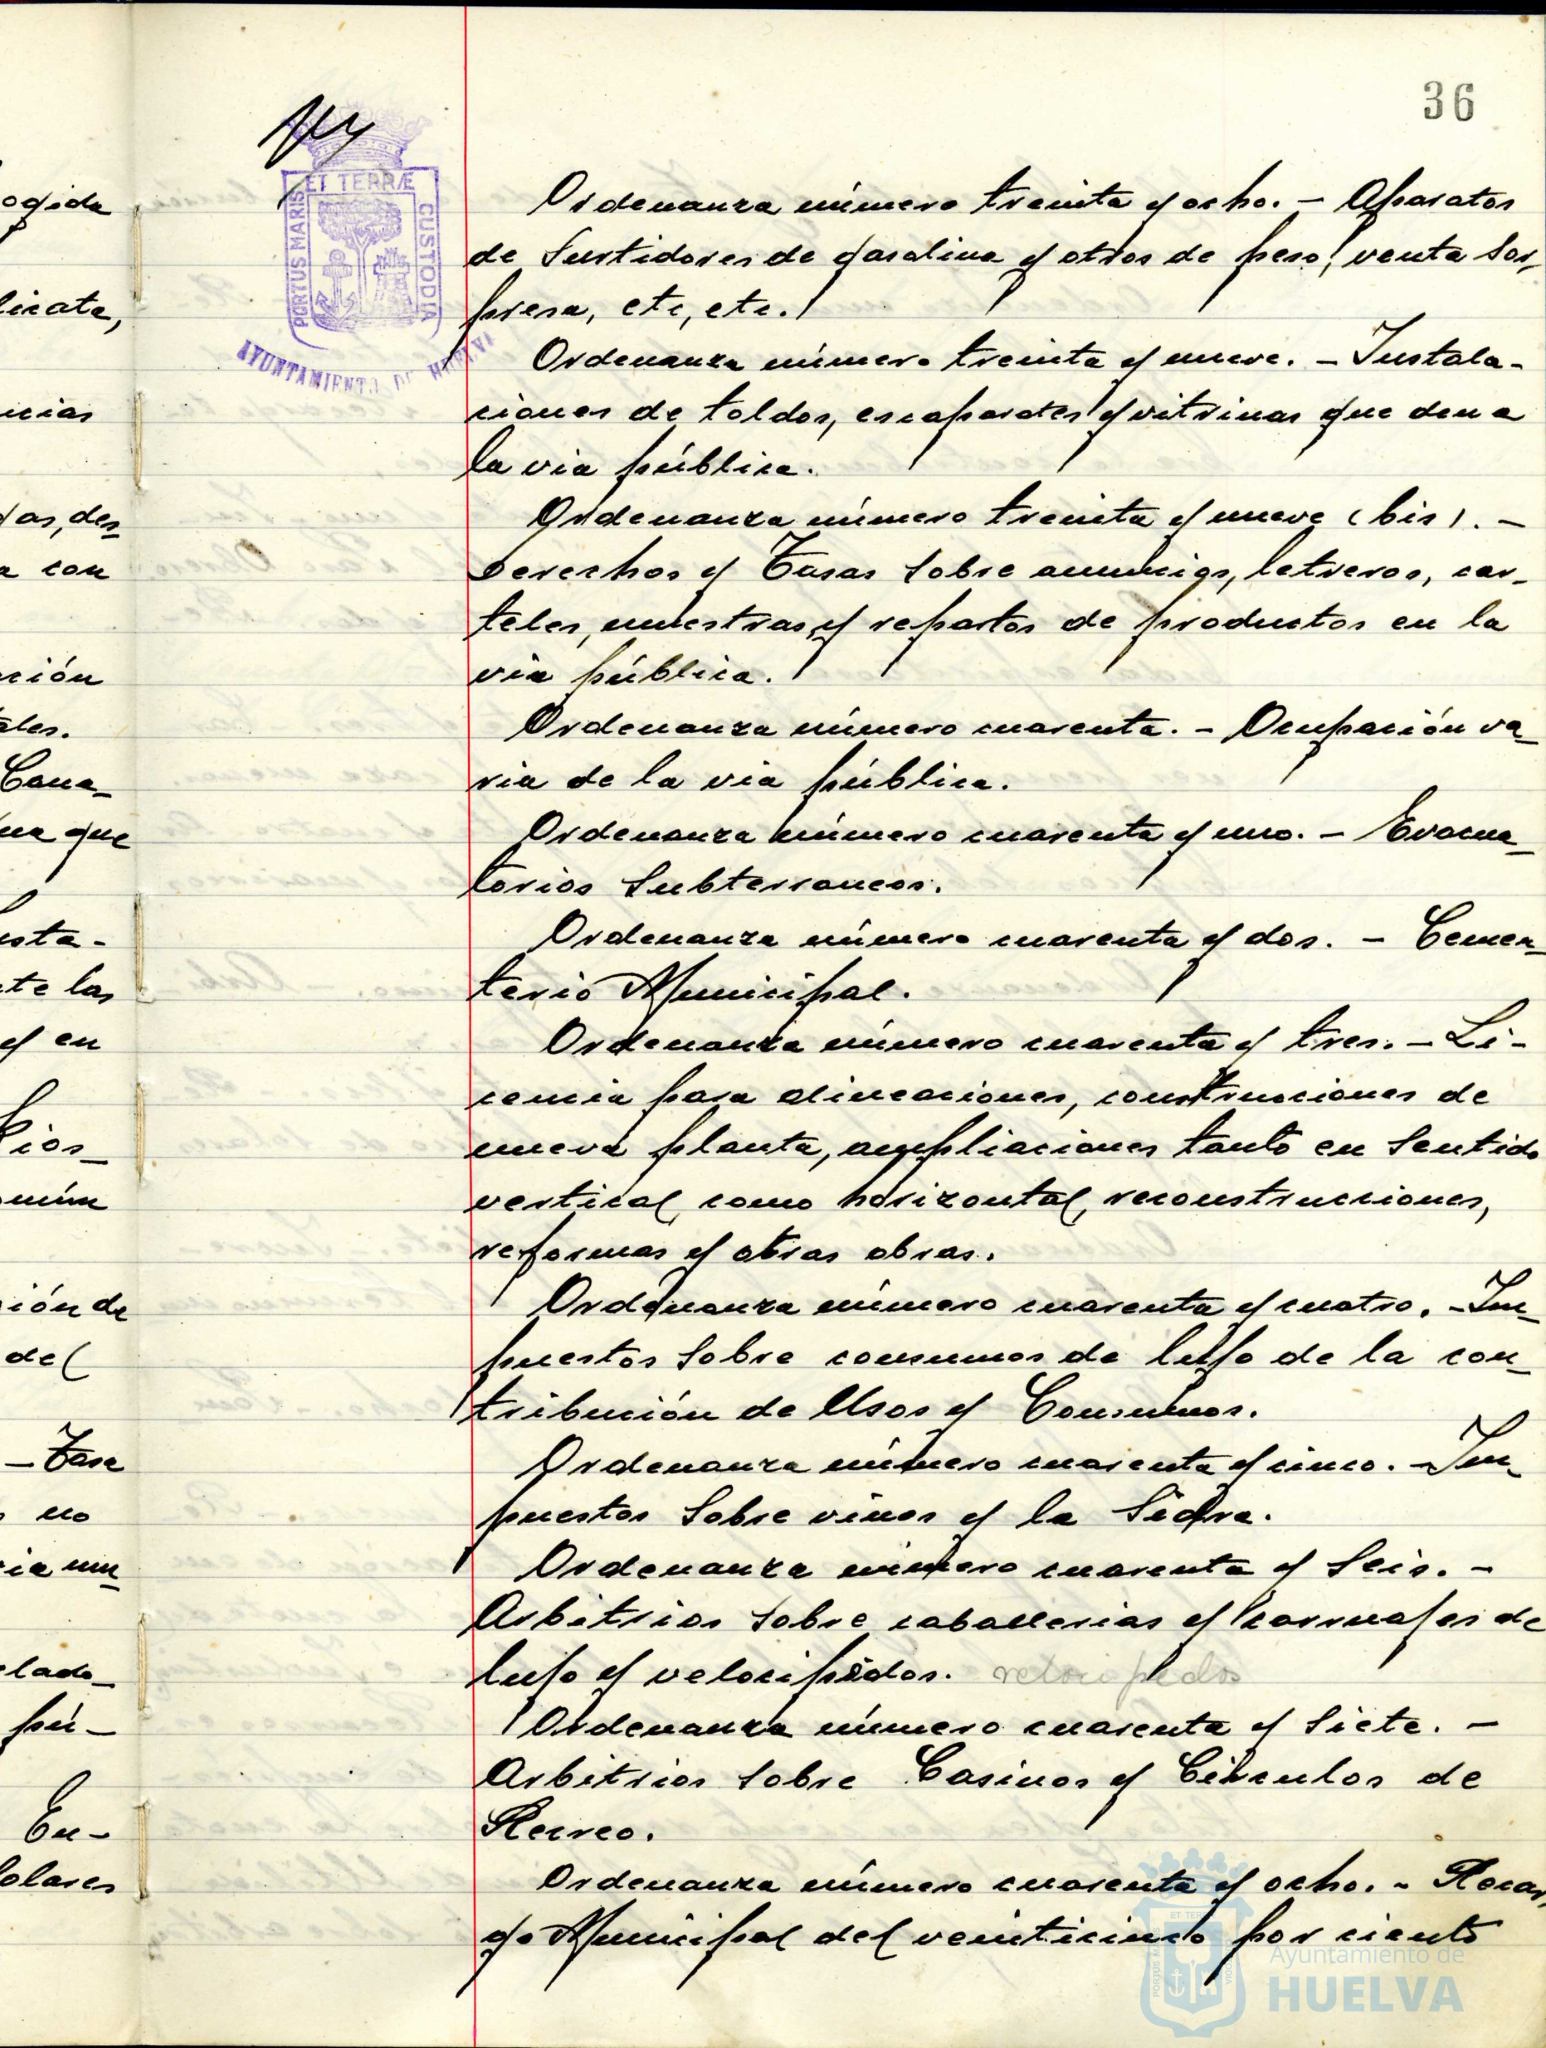 36
ET TERRÆ
PORTUS MARIS
CUSTODIA
AYUNTAMIENTO DE HUELVA
ogida
licate,
ncias
das, des-
a con
ción
ales.
Cana-
na que
usta-
te las
y en
omún
ión de
del
- Tasa
s no
ria mu-
elado-
pú-
En-
solares
Ordenanza número treinta y ocho. - Aparatos
de Surtidores de gasolina y otros de peso, venta Sor-
presa, etc, etc.
Ordenanza número treinta y nueve. - Instala-
ciones de toldos, escaparates y vitrinas que den a
la via pública.
Ordenanza número treinta y nueve (bis). -
Derechos y Tasas Sobre anuncios, letreros, car-
teles, muestras, y repartos de productos en la
via pública.
Ordenanza número cuarenta. - Ocupación va-
ria de la via pública.
Ordenanza número cuarenta y uno. - Evacua-
torios Subterraneos.
Ordenanza número cuarenta y dos. - Cemen-
terio Municipal.
Ordenanza número cuarenta y tres. - Li-
cencia para alineaciones, construcciones de
nueva planta, ampliaciones tanto en Sentido
vertical, como horizontal, reconstrucciones,
reformas y otras obras.
Ordenanza número cuarenta y cuatro. - Im-
puestos Sobre consumos de lujo de la con-
tribución de Usos y Consumos.
Ordenanza número cuarenta y cinco. - Im-
puestos Sobre vinos y la Sidra.
Ordenanza número cuarenta y Seis. -
Arbitrios Sobre caballerias y carruajes de
lujo y velocipedos. velocipedos
Ordenanza número cuarenta y Siete. -
Arbitrios Sobre Casinos y Circulos de
Recreo.
Ordenanza número cuarenta y ocho. - Recar-
go Municipal del veinticinco por ciento
Ayuntamiento de
HUELVA